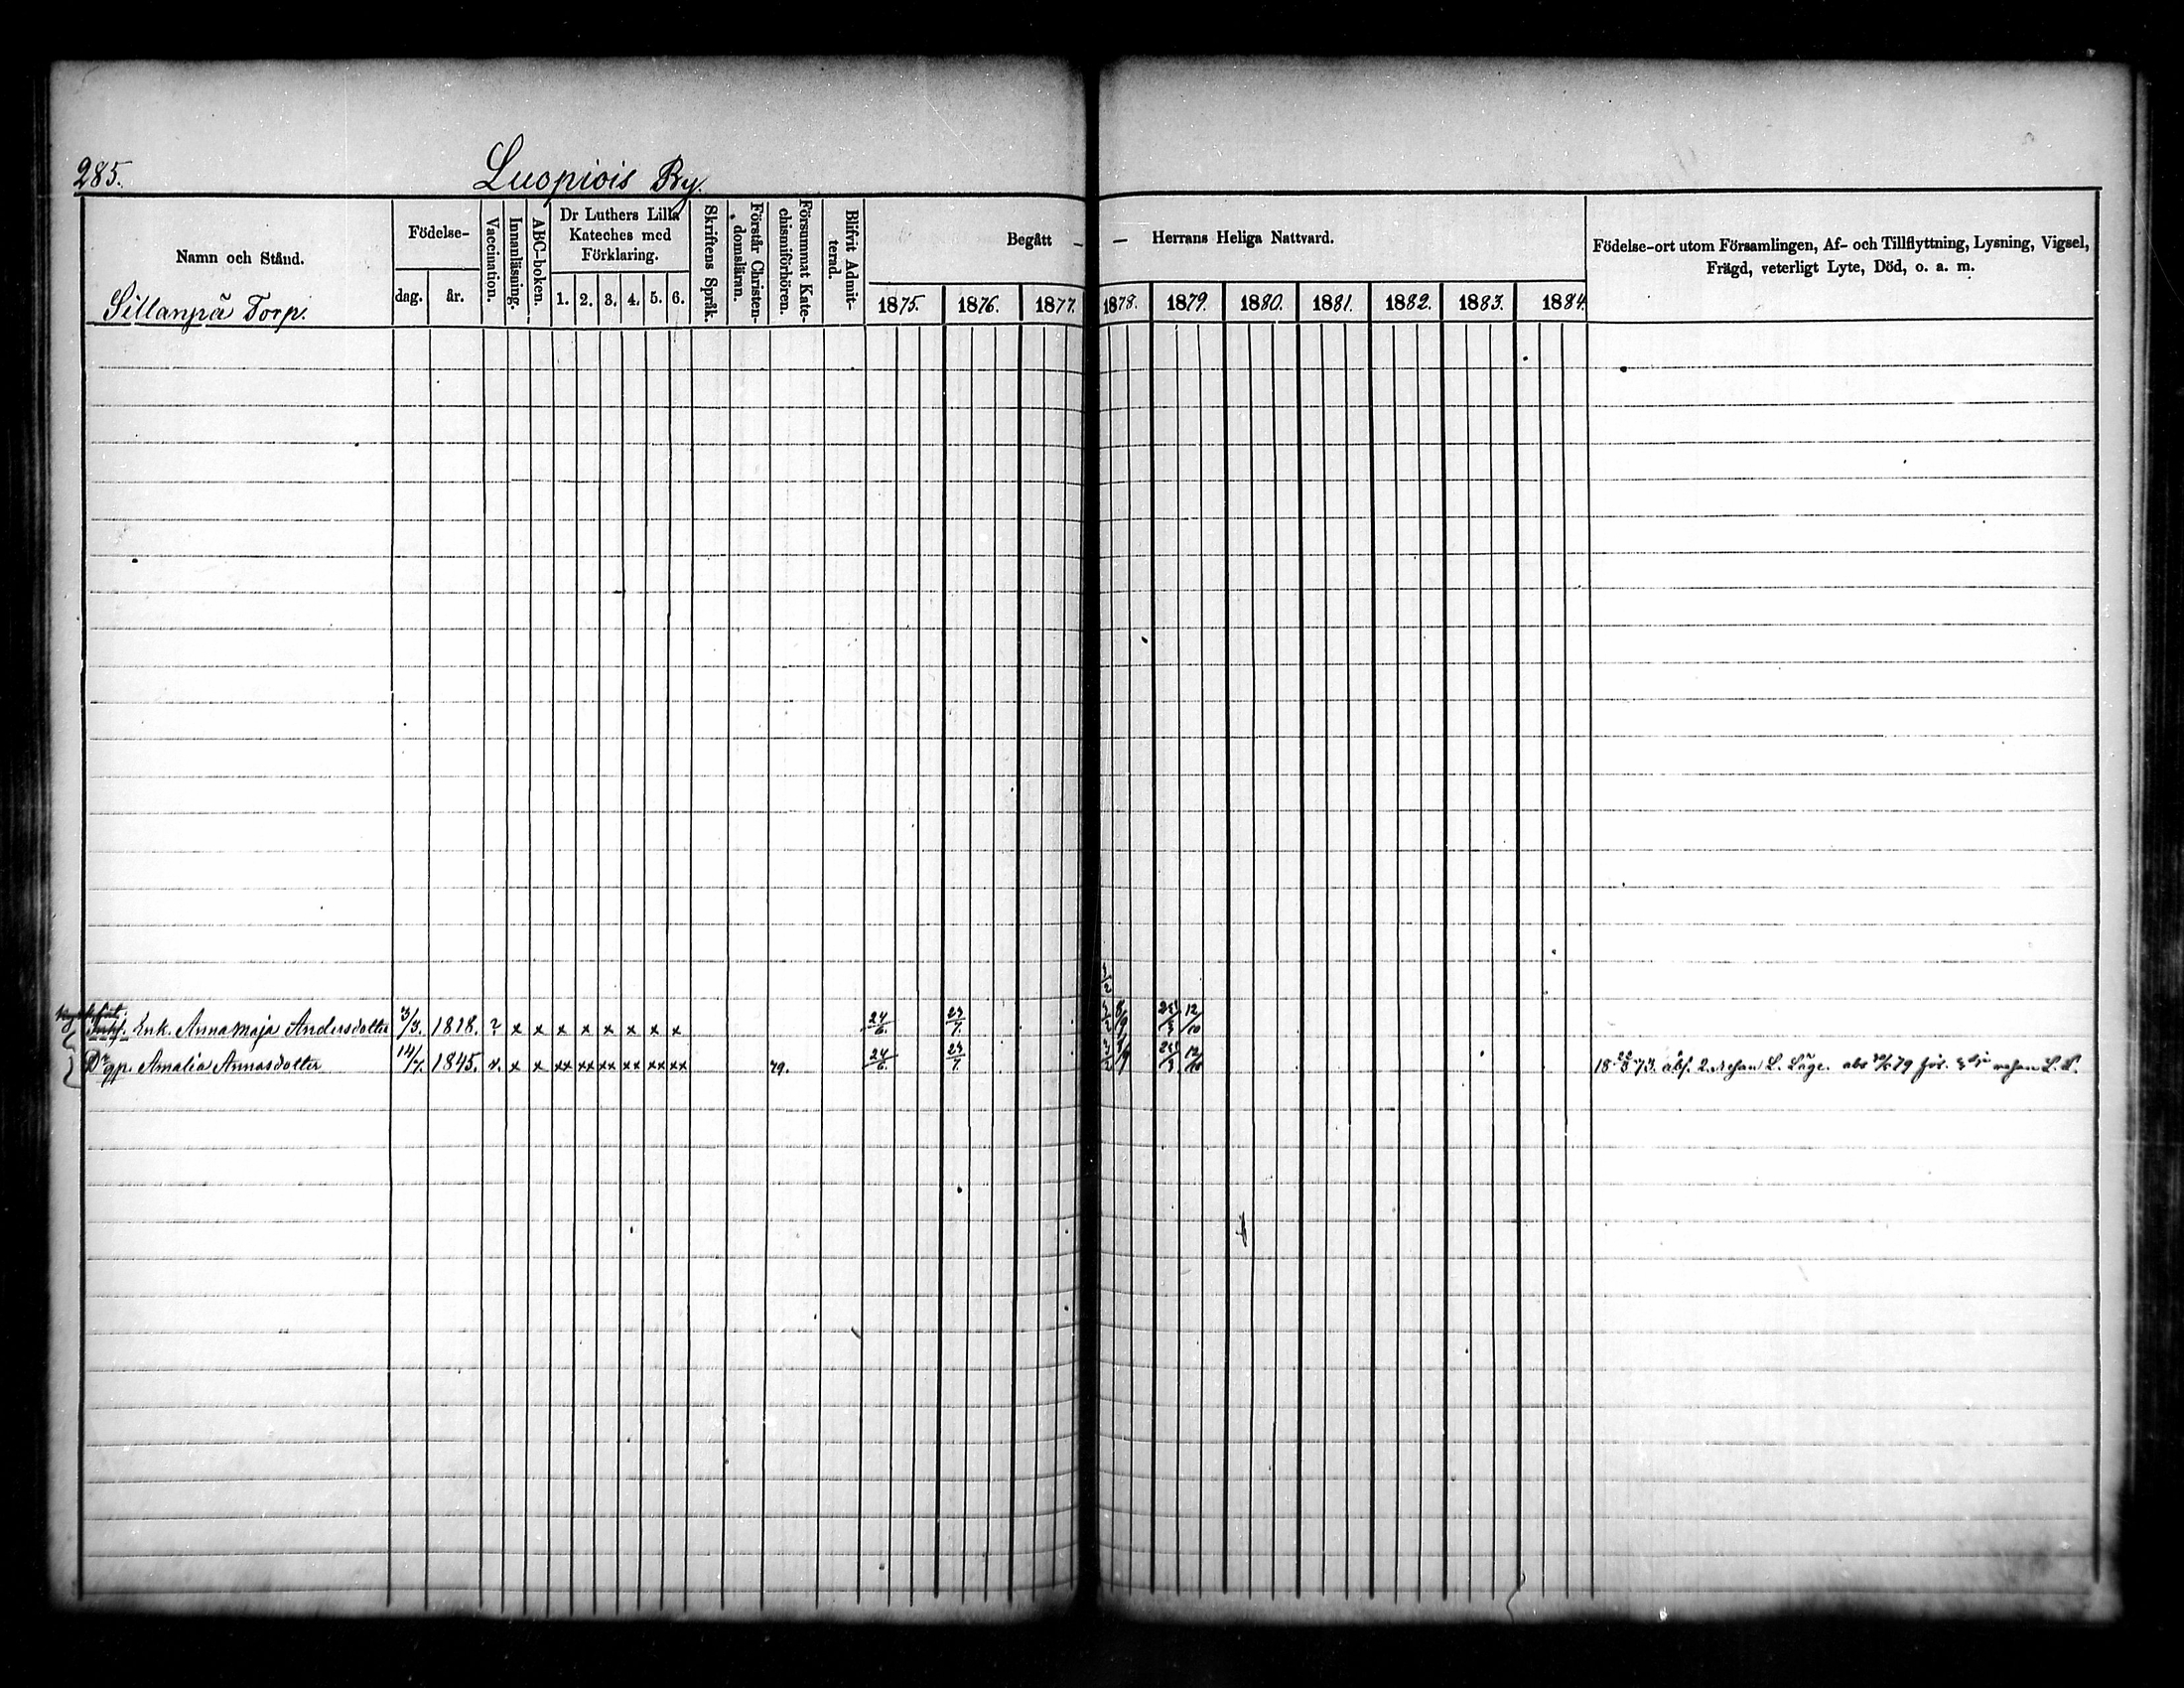 285.
Luopiois By.
Namn och Stånd.
Sillanpä Torp.
Födelse-
dag. år.
Vaccination.
Innanläsning.
ABC-boken.
Dr Luthers Lilla
Kateches med
Förklaring.
1. 2. 3. 4. 5. 6.
Skriftens Språk.
Förstår Christen-
domsläran.
Försummat Kate-
chismiförhören.
Blifvit Admit-
terad.
Begått — — Herrans Heliga Nattvard.
1875. 1876. 1877. 1878. 1879. 1880. 1881. 1882. 1883. 1884.
Födelse-ort utom Församlingen, Af- och Tillflyttning, Lysning, Vigsel,
Frägd, veterligt Lyte, Död, o. a. m.
Enk. Anna Maja Andersdotter 3/3. 1818. ? x x x x x x x x 24/6 23/7 3/2 8/9 23/3 12/10
Dr gp. Amalia Annasdotter 14/7. 1845. v. x x xx xx xx xx xx xx 79. 24/6 23/7 3/2 8/9 23/3 12/10 L. Läge.